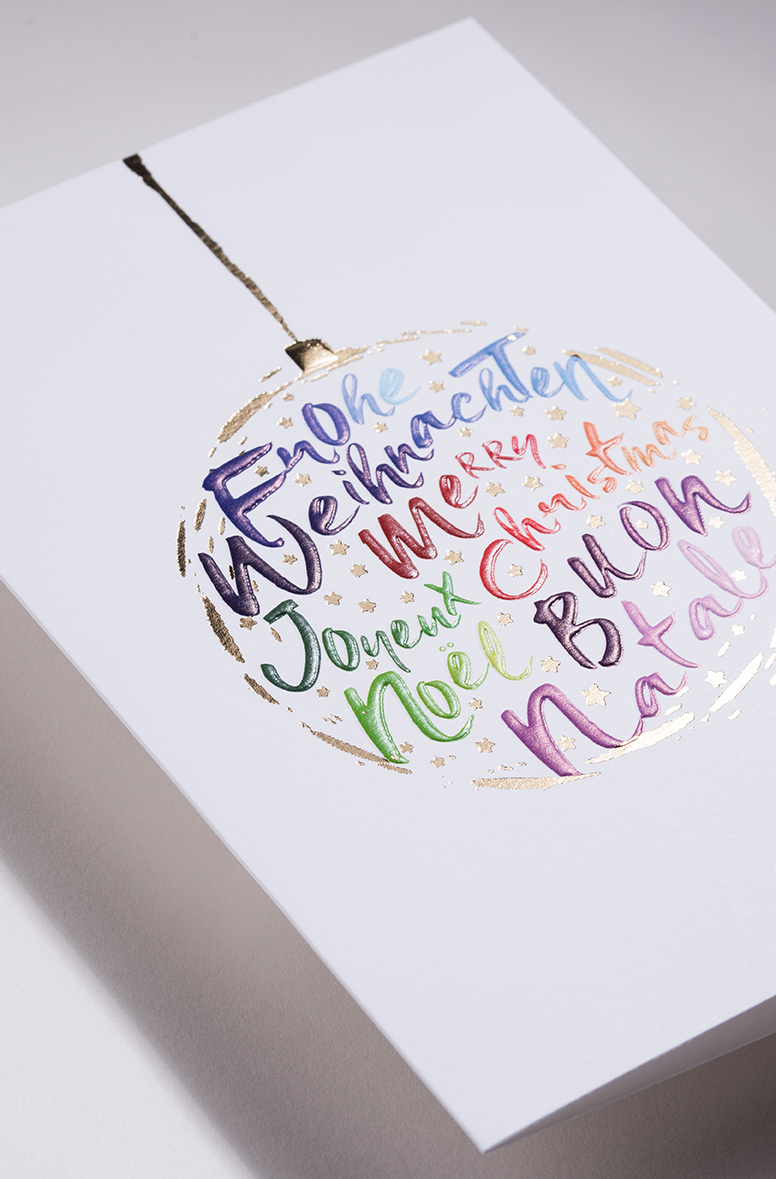 Frohe
Weihnachten
Merry
Christmas
Joyeux
Noël
Buon
Natale